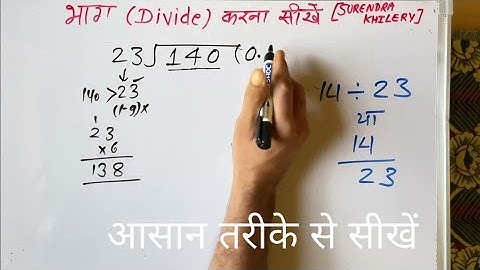 भाग (Divide) करना सीखें [SURENDRA KHILERY]
23) 140 (0.
140 > 23
(1-9)x
1
23
x6
138
14 ÷ 23
या
14
23
आसान तरीके से सीखें